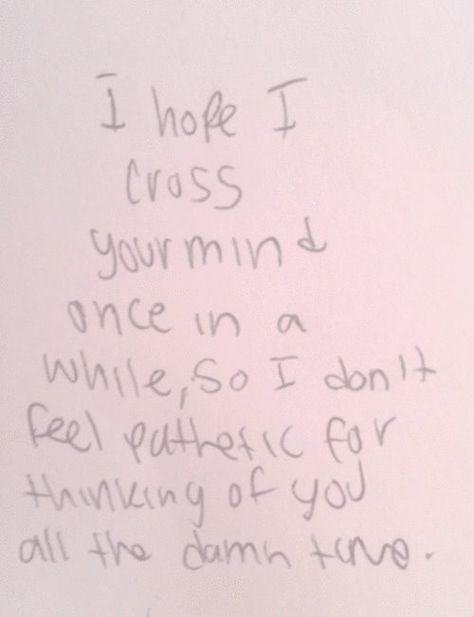 I hope I
cross
your mind
once in a
while, so I don't
feel pathetic for
thinking of you
all the damn time.